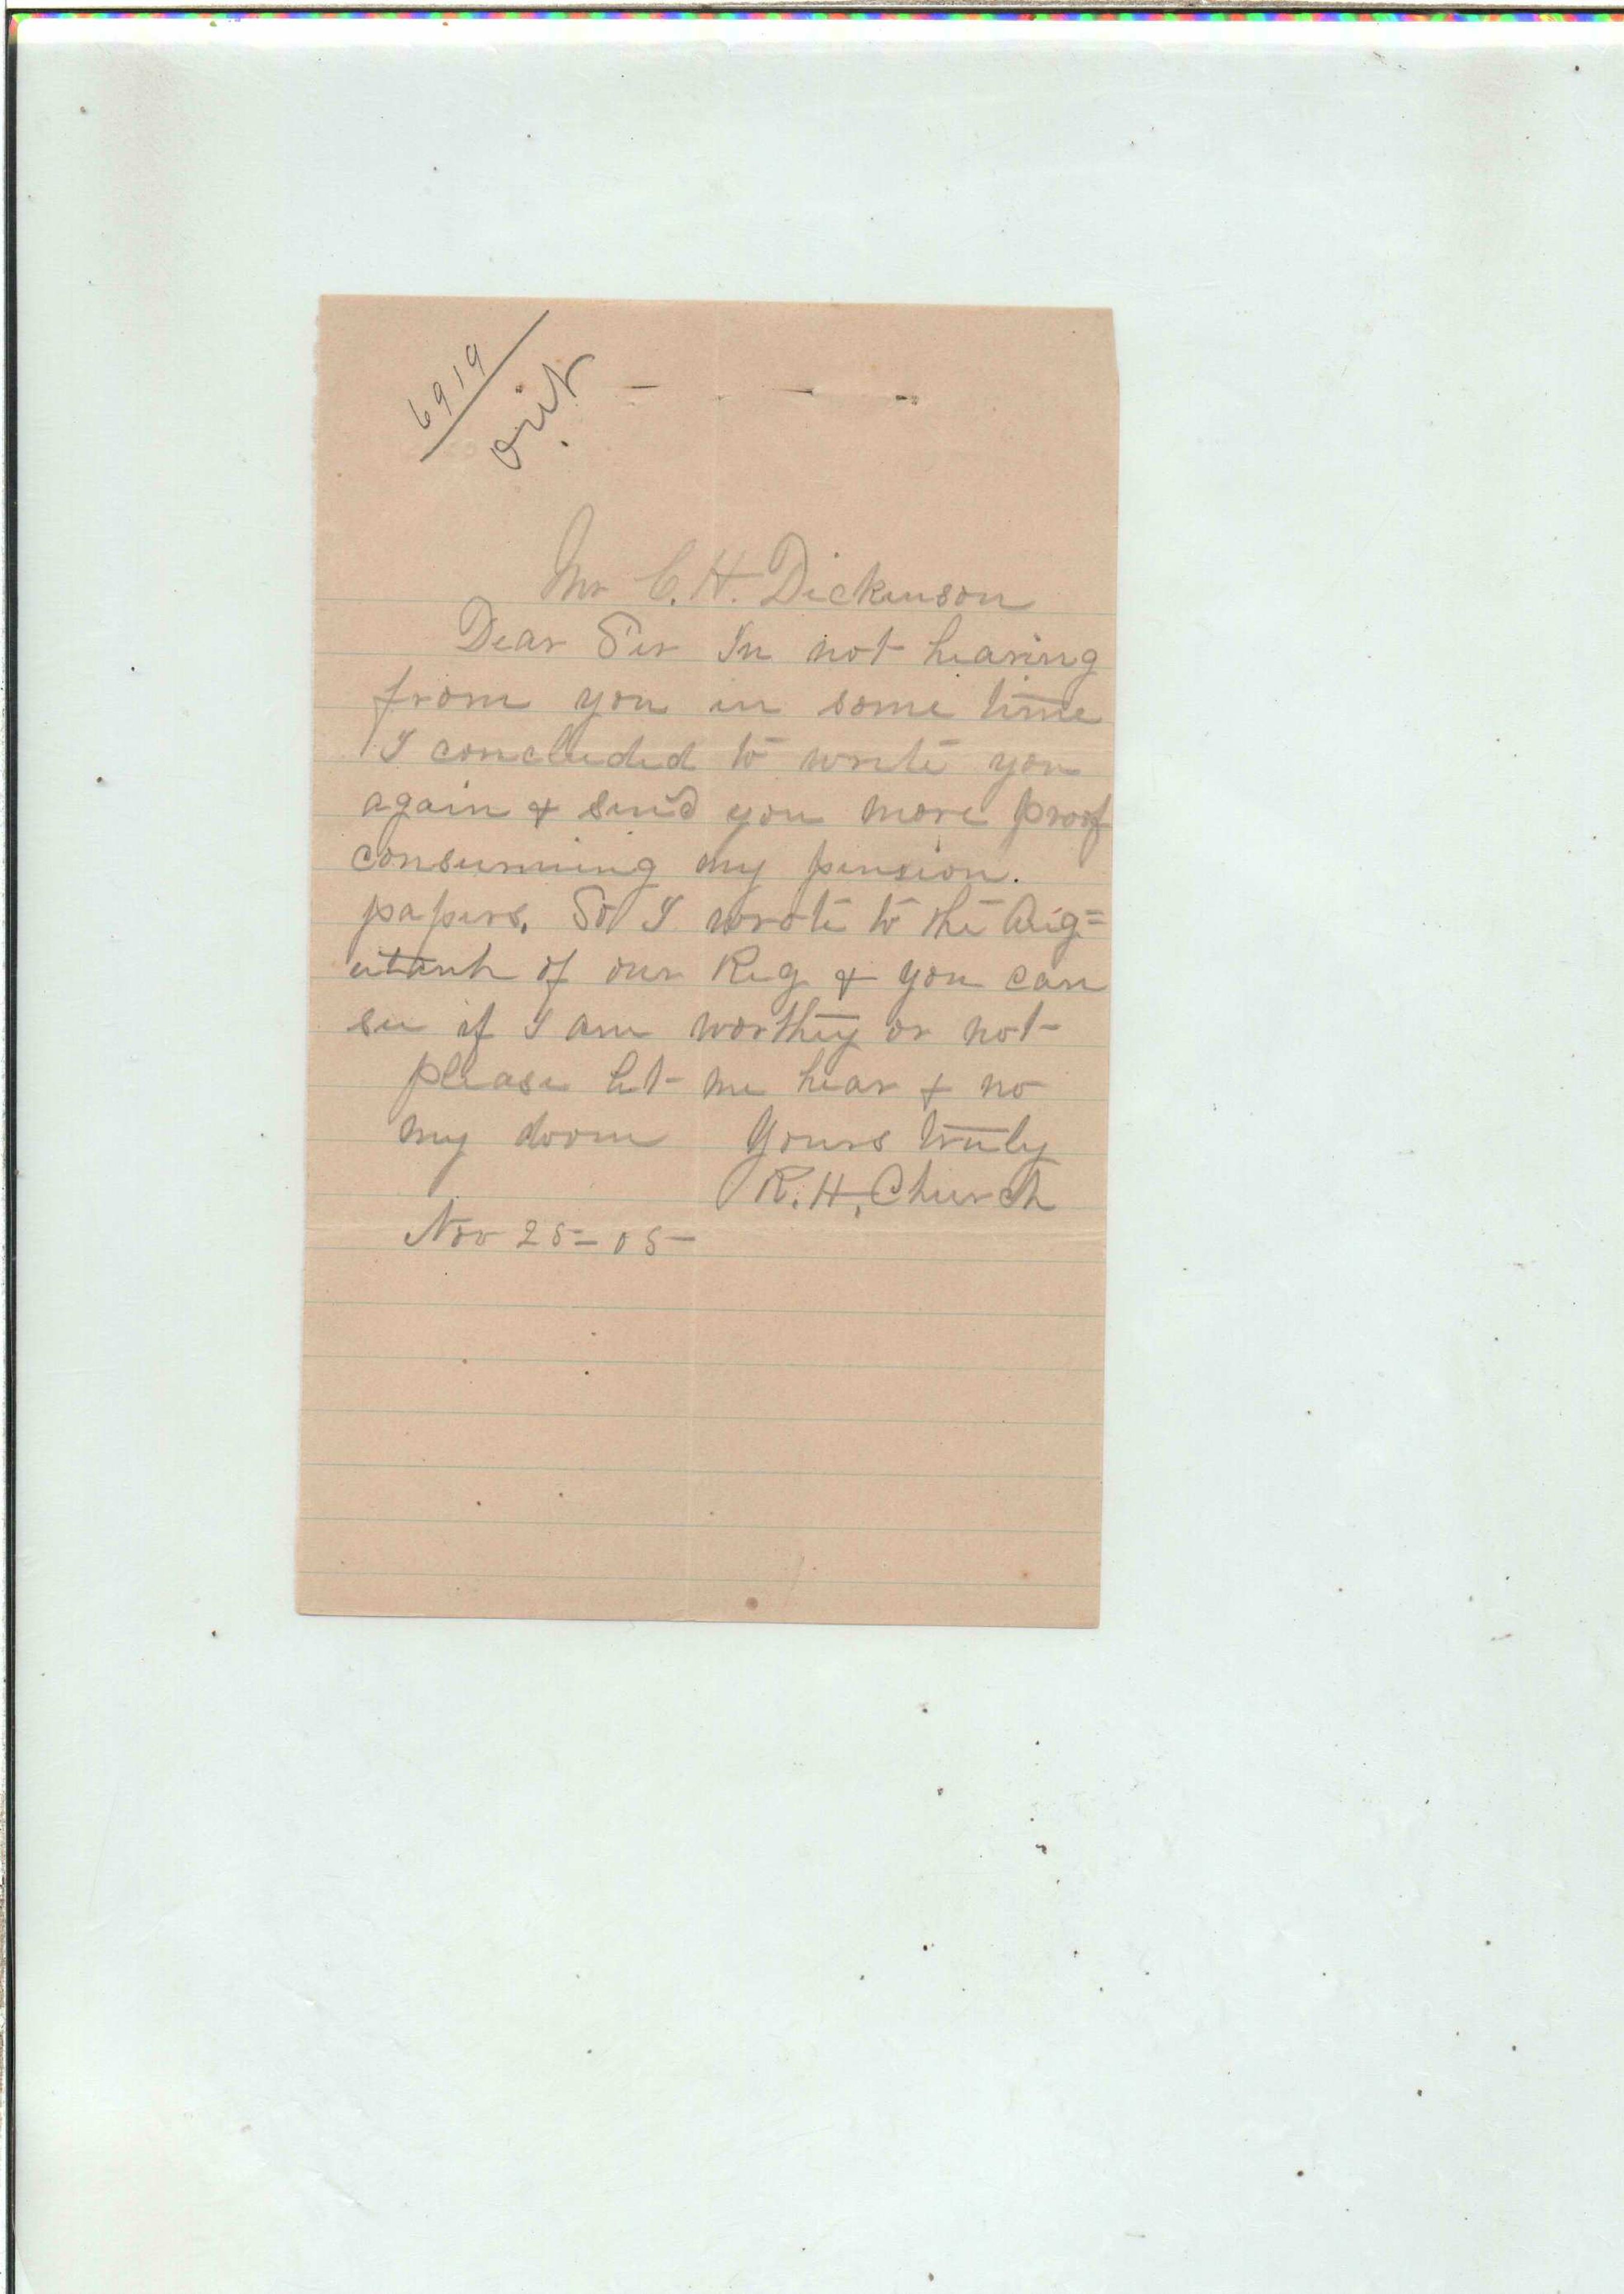 6919
Mr C. H. Dickinson
Dear Sir In not hearing
from you in some time
I concluded to write you
again & send you more proof
consurning my pension.
papers. So I wrote to the Aig=
utant of our Reg & you can
see if I am worthy or not
please let me hear & no
my doom Yours truly
R. H. Church
Nov 25 - 05